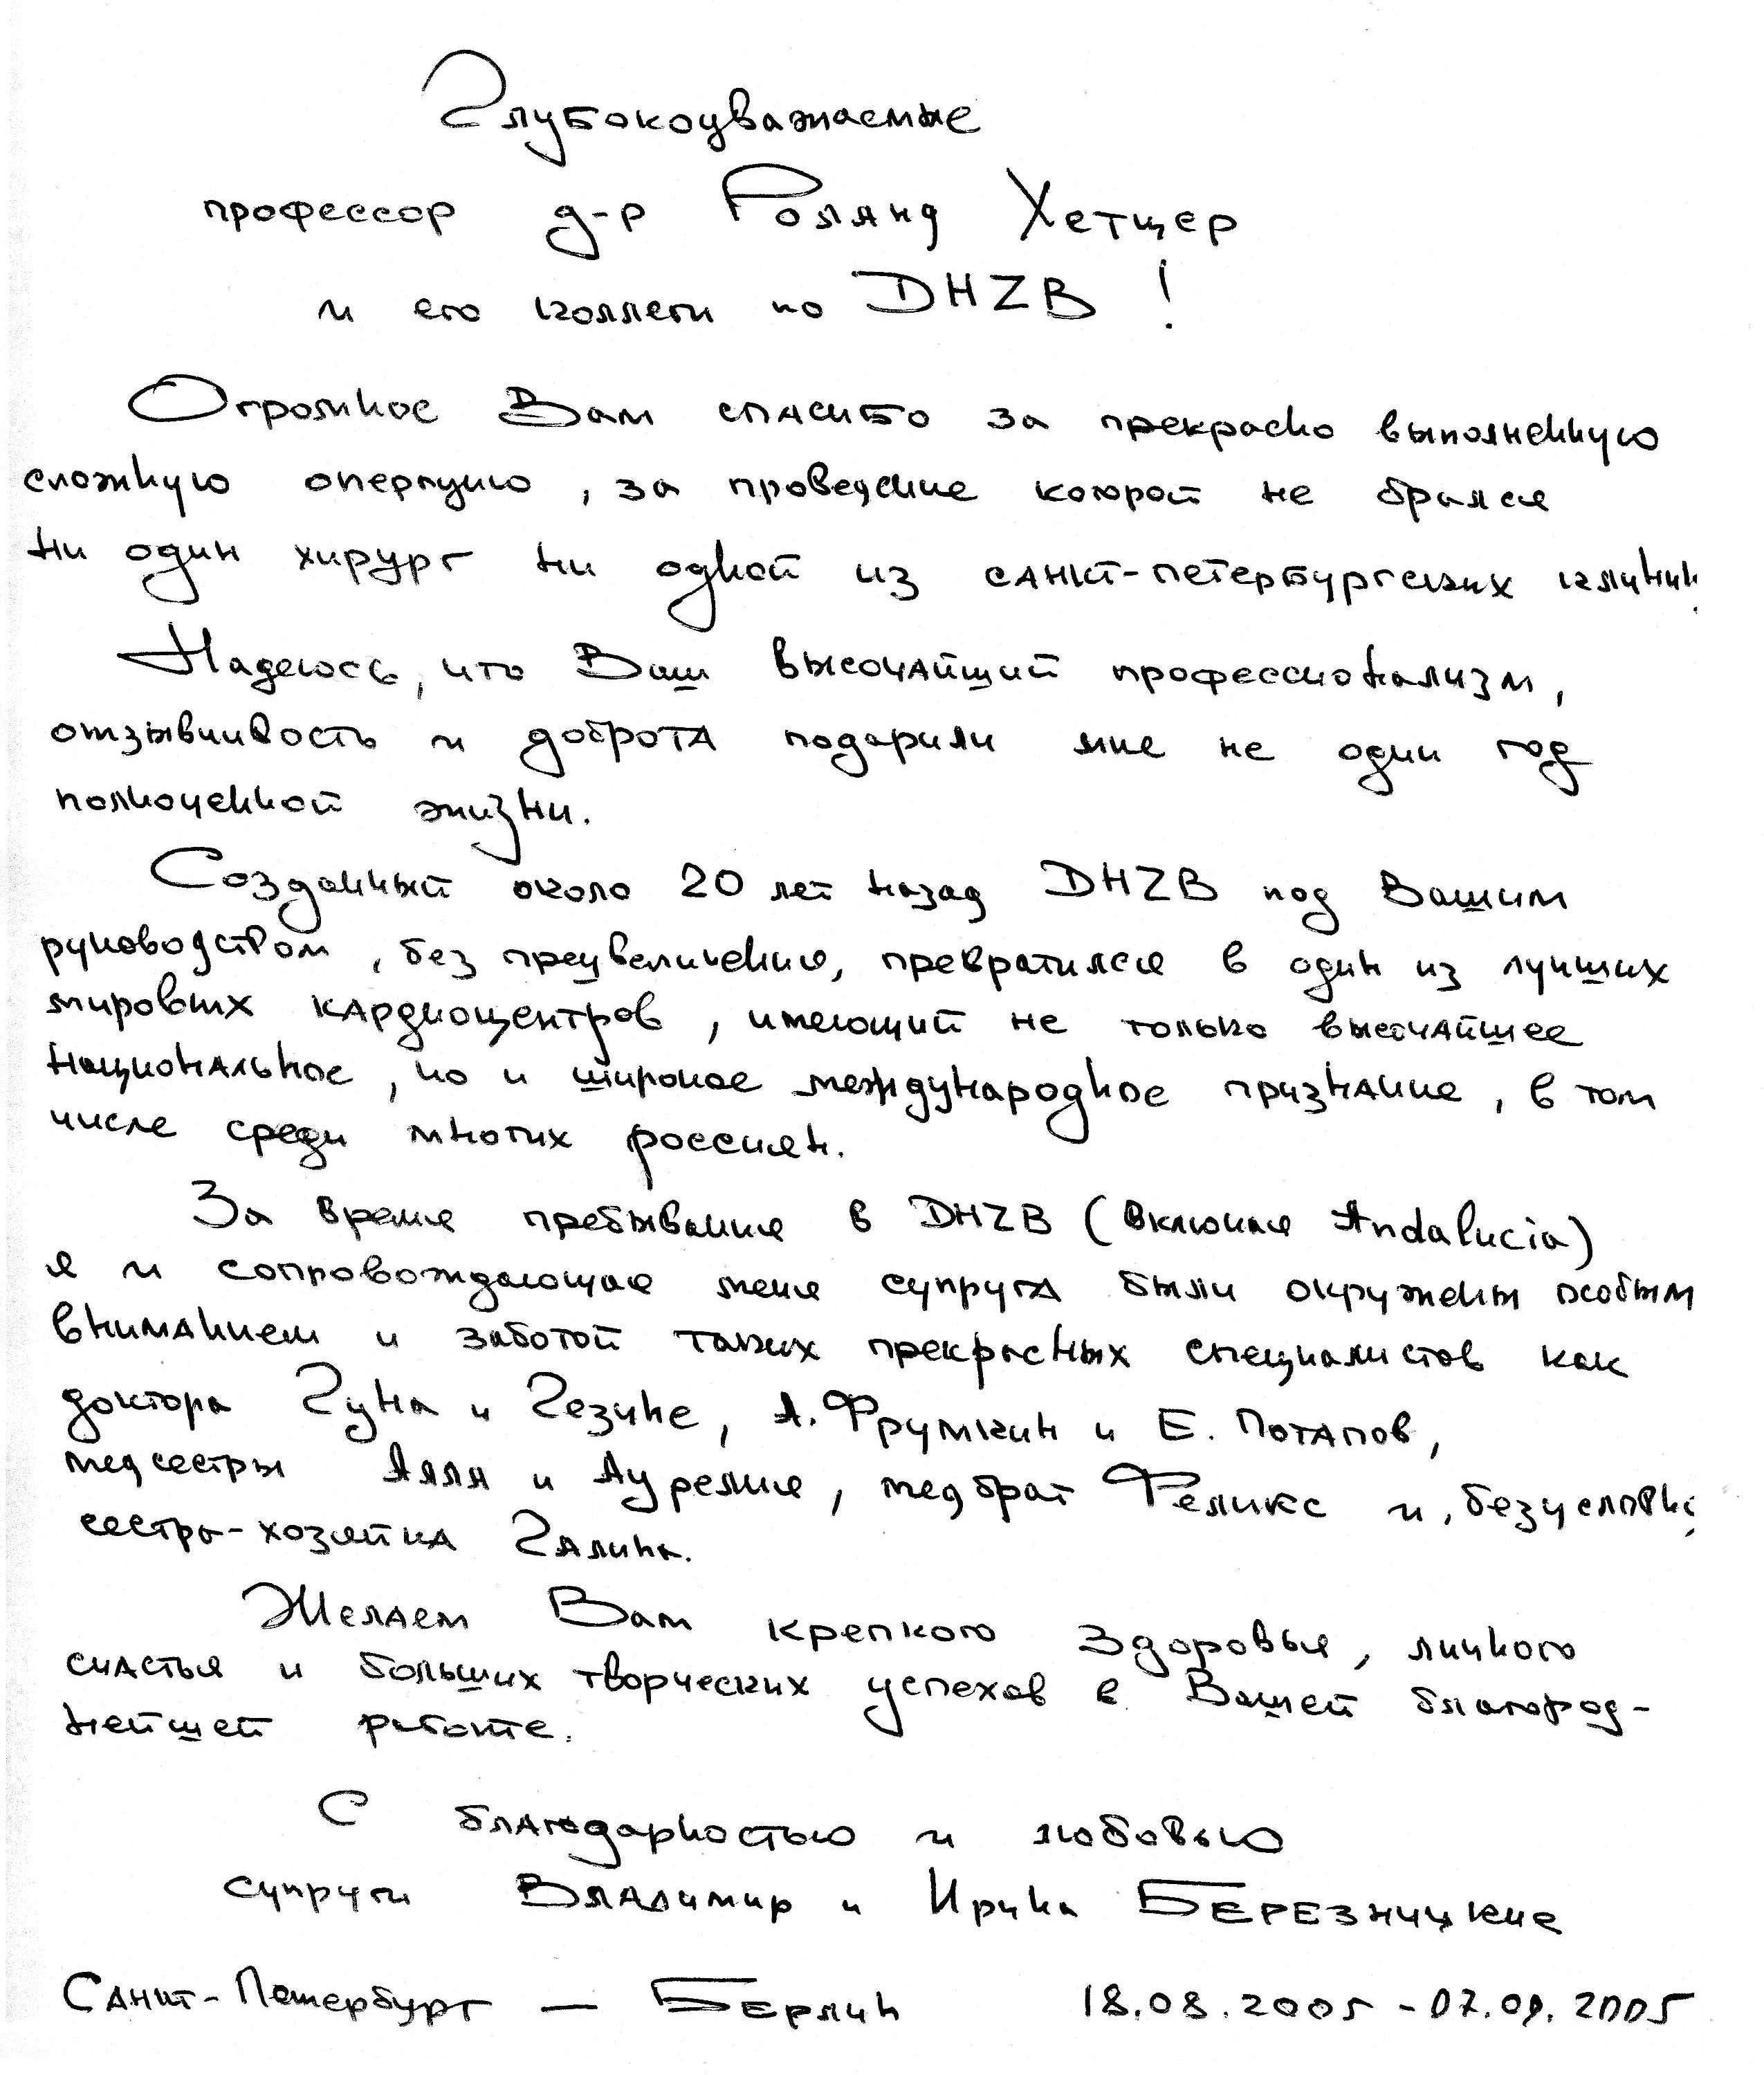 Глубокоуважаемые
профессор д-р Ролянд Хетцер
и его коллеги по DHZB!
Огромное Вам спасибо за прекрасно выполненную
сложную операцию, за проведение которой не брался
ни один хирург ни одной из санкт-петербургских клиник
Надеюсь, что Ваш высочайший профессионализм,
отзывчивость и доброта подарили мне не один год
полноценной жизни.
Созданный около 20 лет назад DHZB под Вашим
руководством, без преувеличения, превратился в один из лучших
мировых кардиоцентров, имеющий не только высочайшее
национальное, но и широкое международное признание, в том
числе среди многих россиян.
За время пребывания в DHZB (включая Andalucia)
я и сопровождающая меня супруга были окружены особым
вниманием и заботой таких прекрасных специалистов как
доктора Гуна и Гезине, А. Фрумкин и Е. Потапов,
медсестры Аля и Аурелия, медбрат Феликс и, безусловно,
сестра-хозяйка Галина.
Желаем Вам крепкого здоровья, личного
счастья и больших творческих успехов в Вашей благород-
нейшей работе.
С благодарностью и любовью
супруги Владимир и Ирина БЕРЕЗНИЦКИЕ
Санкт-Петербург — Берлин 18.08.2005 - 07.09.2005